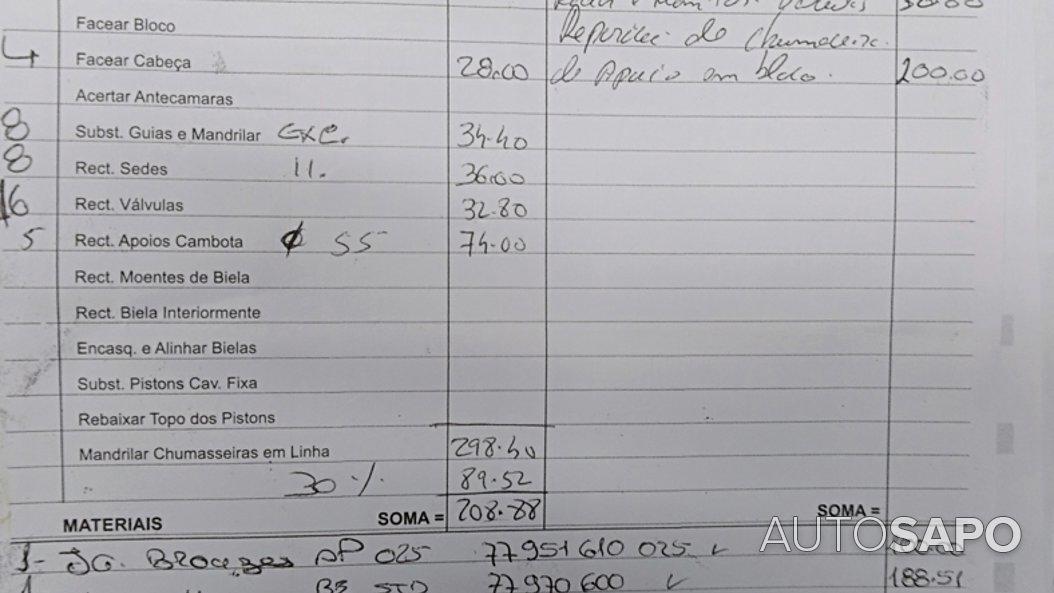 50.00
Facear Bloco
de Chumaceira
4 Facear Cabeça 28.00 de Apoio em bloco. 200.00
Acertar Antecamaras
8 Subst. Guias e Mandrilar Exc. 34.40
8 Rect. Sedes 11. 36.00
16 Rect. Válvulas 32.80
5 Rect. Apoios Cambota ϕ 55 74.00
Rect. Moentes de Biela
Rect. Biela Interiormente
Encasq. e Alinhar Bielas
Subst. Pistons Cav. Fixa
Rebaixar Topo dos Pistons
Mandrilar Chumasseiras em Linha 298.40
30 % 89.52
MATERIAIS SOMA = 208.88 SOMA =
AUTOSAPO
1- JG. Bronzes AP 025 77951610 025 ✓
1 BB STD 77970600 ✓ 188.51